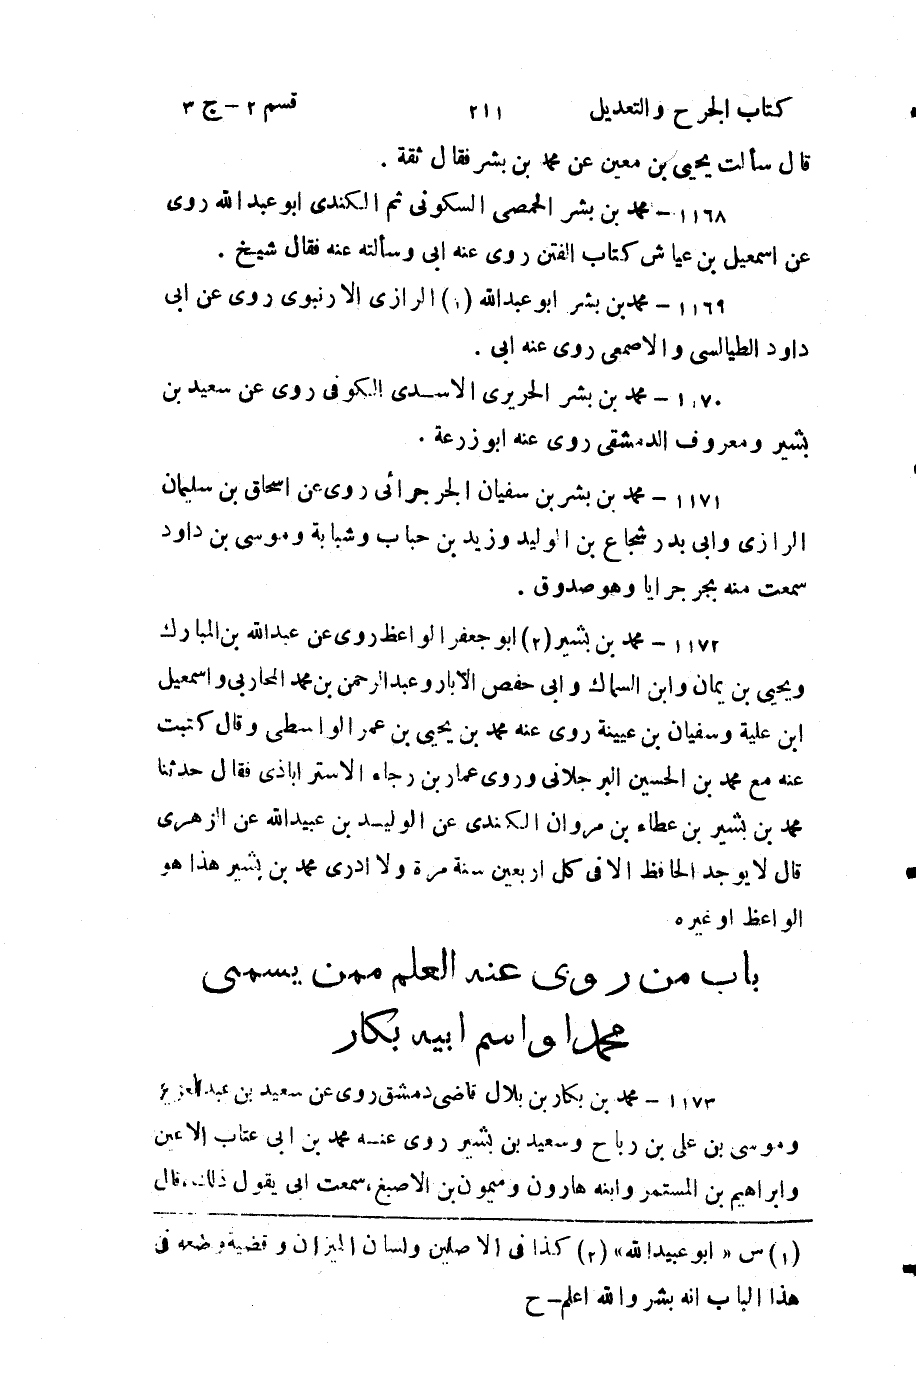 كتاب الجرح والتعديل ٢١١ قسم ٢ - ج ٣
قال سألت يحيى بن معين عن محمد بن بشر فقال ثقة .
١١٦٨ - محمد بن بشر الحمصى السكونى ثم الكندى ابو عبد الله روى
عن اسمعيل بن عياش كتاب الفتن روى عنه ابى وسألته عنه فقال شيخ .
١١٦٩ - محمد بن بشر ابو عبد الله (١) الرازى الارنبوى روى عن ابى
داود الطيالسى والاصمعى روى عنه ابى .
١١٧٠ - محمد بن بشر الحريرى الاسدى الكوفى روى عن سعيد بن
بشير ومعروف الدمشقى روى عنه ابو زرعة .
١١٧١ - محمد بن بشر بن سفيان الجرجرائى روى عن اسحاق بن سليمان
الرازى وابى بدر شجاع بن الوليد وزيد بن حباب وشبابة وموسى بن داود
سمعت منه بجرجرايا وهو صدوق .
١١٧٢ - محمد بن بشير (٢) ابو جعفر الواعظ روى عن عبد الله بن المبارك
ويحيى بن يمان وابن السماك وابى حفص الابار وعبد الرحمن بن محمد المحاربى واسمعيل
ابن علية وسفيان بن عيينة روى عنه محمد بن يحيى بن عمر الواسطى وقال كتبت
عنه مع محمد بن الحسين البرجلانى وروى عمار بن رجاء الاستراباذى فقال حدثنا
محمد بن بشير بن عطاء بن مروان الكندى عن الوليد بن عبيد الله عن الزهرى
قال لا يوجد الحافظ الا فى كل اربعين سنة مرة ولا ادرى محمد بن بشير هذا هو
الواعظ او غيره
باب من روى عنه العلم ممن يسمى
محمدا واسم ابيه بكار
١١٧٣ - محمد بن بكار بن بلال قاضى دمشق روى عن سعيد بن عبد العزيز
وموسى بن على بن رباح وسعيد بن بشير روى عنه محمد بن ابى عتاب الاعين
وابراهيم بن المستمر وابنه هارون وميمون بن الاصبغ، سمعت ابى يقول ذلك، قال
(١) س « ابو عبيد الله» (٢) كذا فى الاصلين ولسان الميزان وقضية وضعه فى
هذا الباب انه بشر والله اعلم - ح